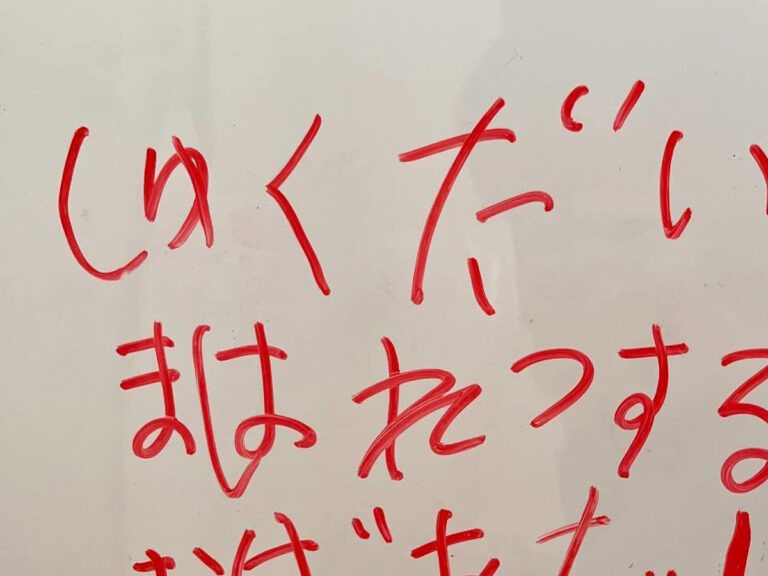 しゅくだい
まはれつする